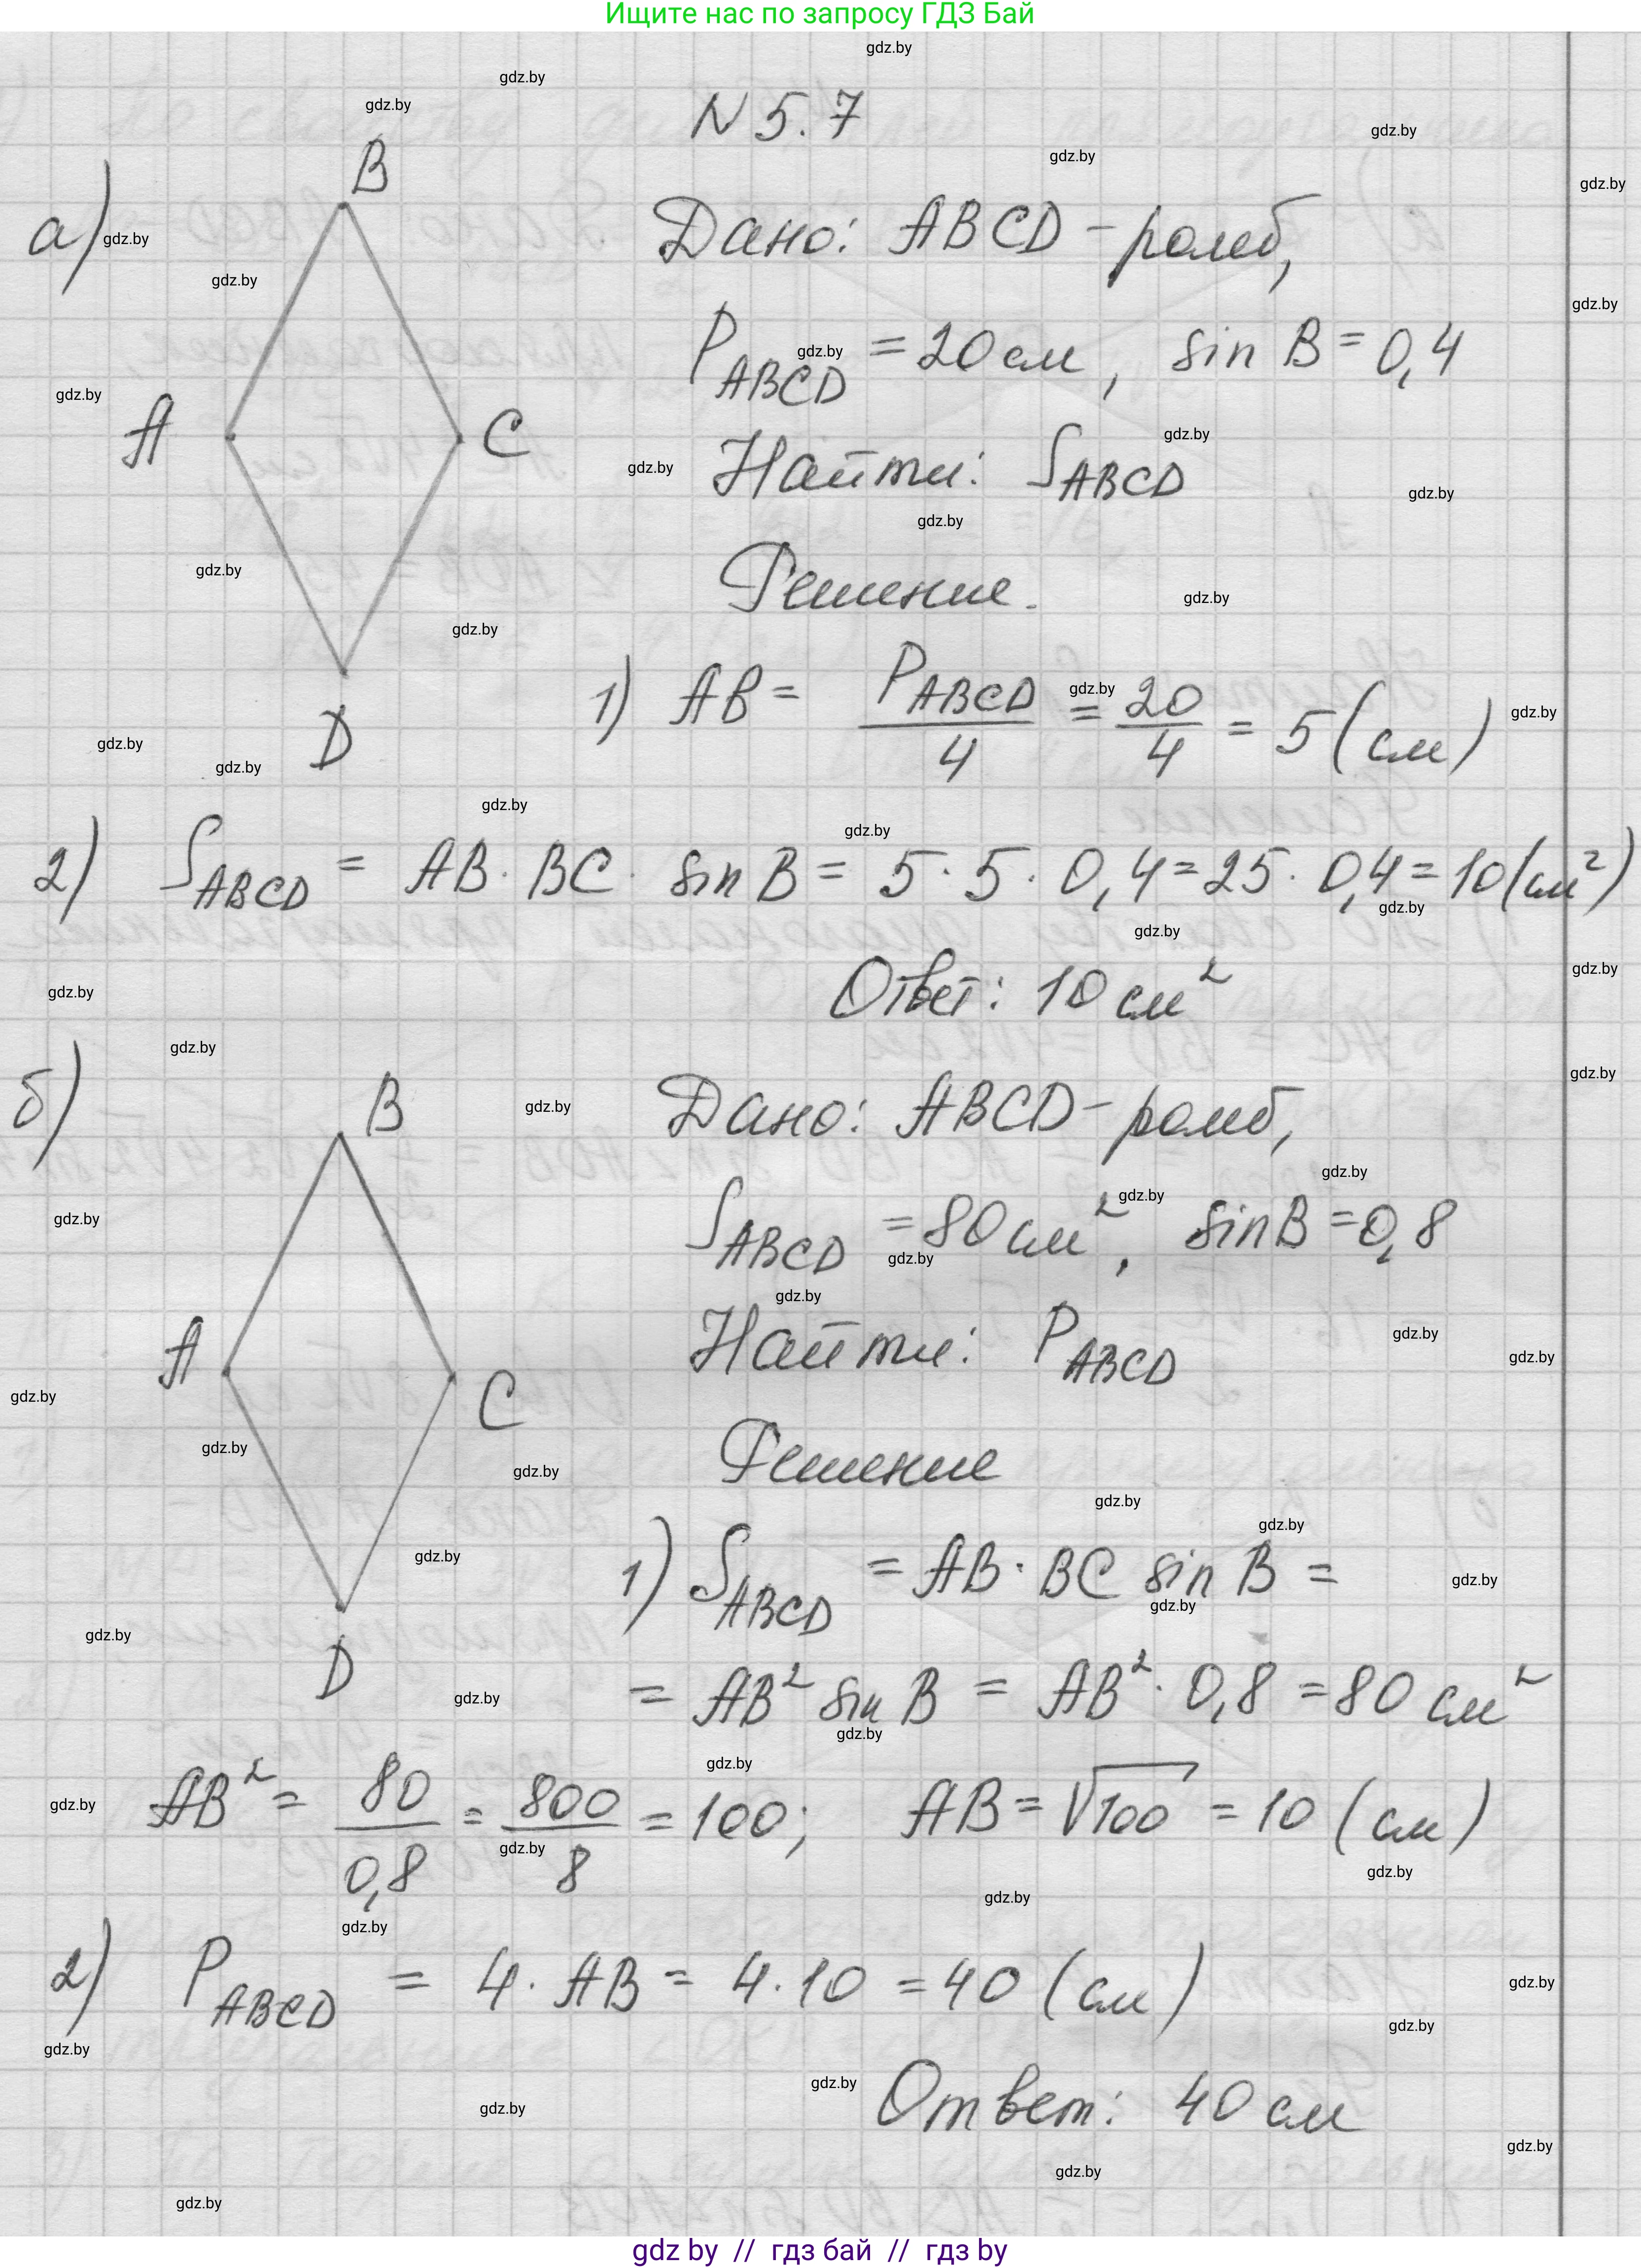 Ищите нас по запросу ГДЗ Бай
N 5.7
а)
B
A
C
D
Дано: ABCD - ромб,
P_ABCD = 20 см, sin B = 0,4
Найти: S_ABCD
Решение.
1) AB = P_ABCD/4 = 20/4 = 5 (см)
2) S_ABCD = AB · BC · sin B = 5 · 5 · 0,4 = 25 · 0,4 = 10 (см²)
Ответ: 10 см²
б)
B
A
C
D
Дано: ABCD - ромб,
S_ABCD = 80 см², sin B = 0,8
Найти: P_ABCD
Решение
1) S_ABCD = AB · BC sin B =
= AB² sin B = AB² · 0,8 = 80 см²
AB² = 80/0,8 = 800/8 = 100; AB = √100 = 10 (см)
2) P_ABCD = 4 · AB = 4 · 10 = 40 (см)
Ответ: 40 см
gdz by // гдз бай // гдз by